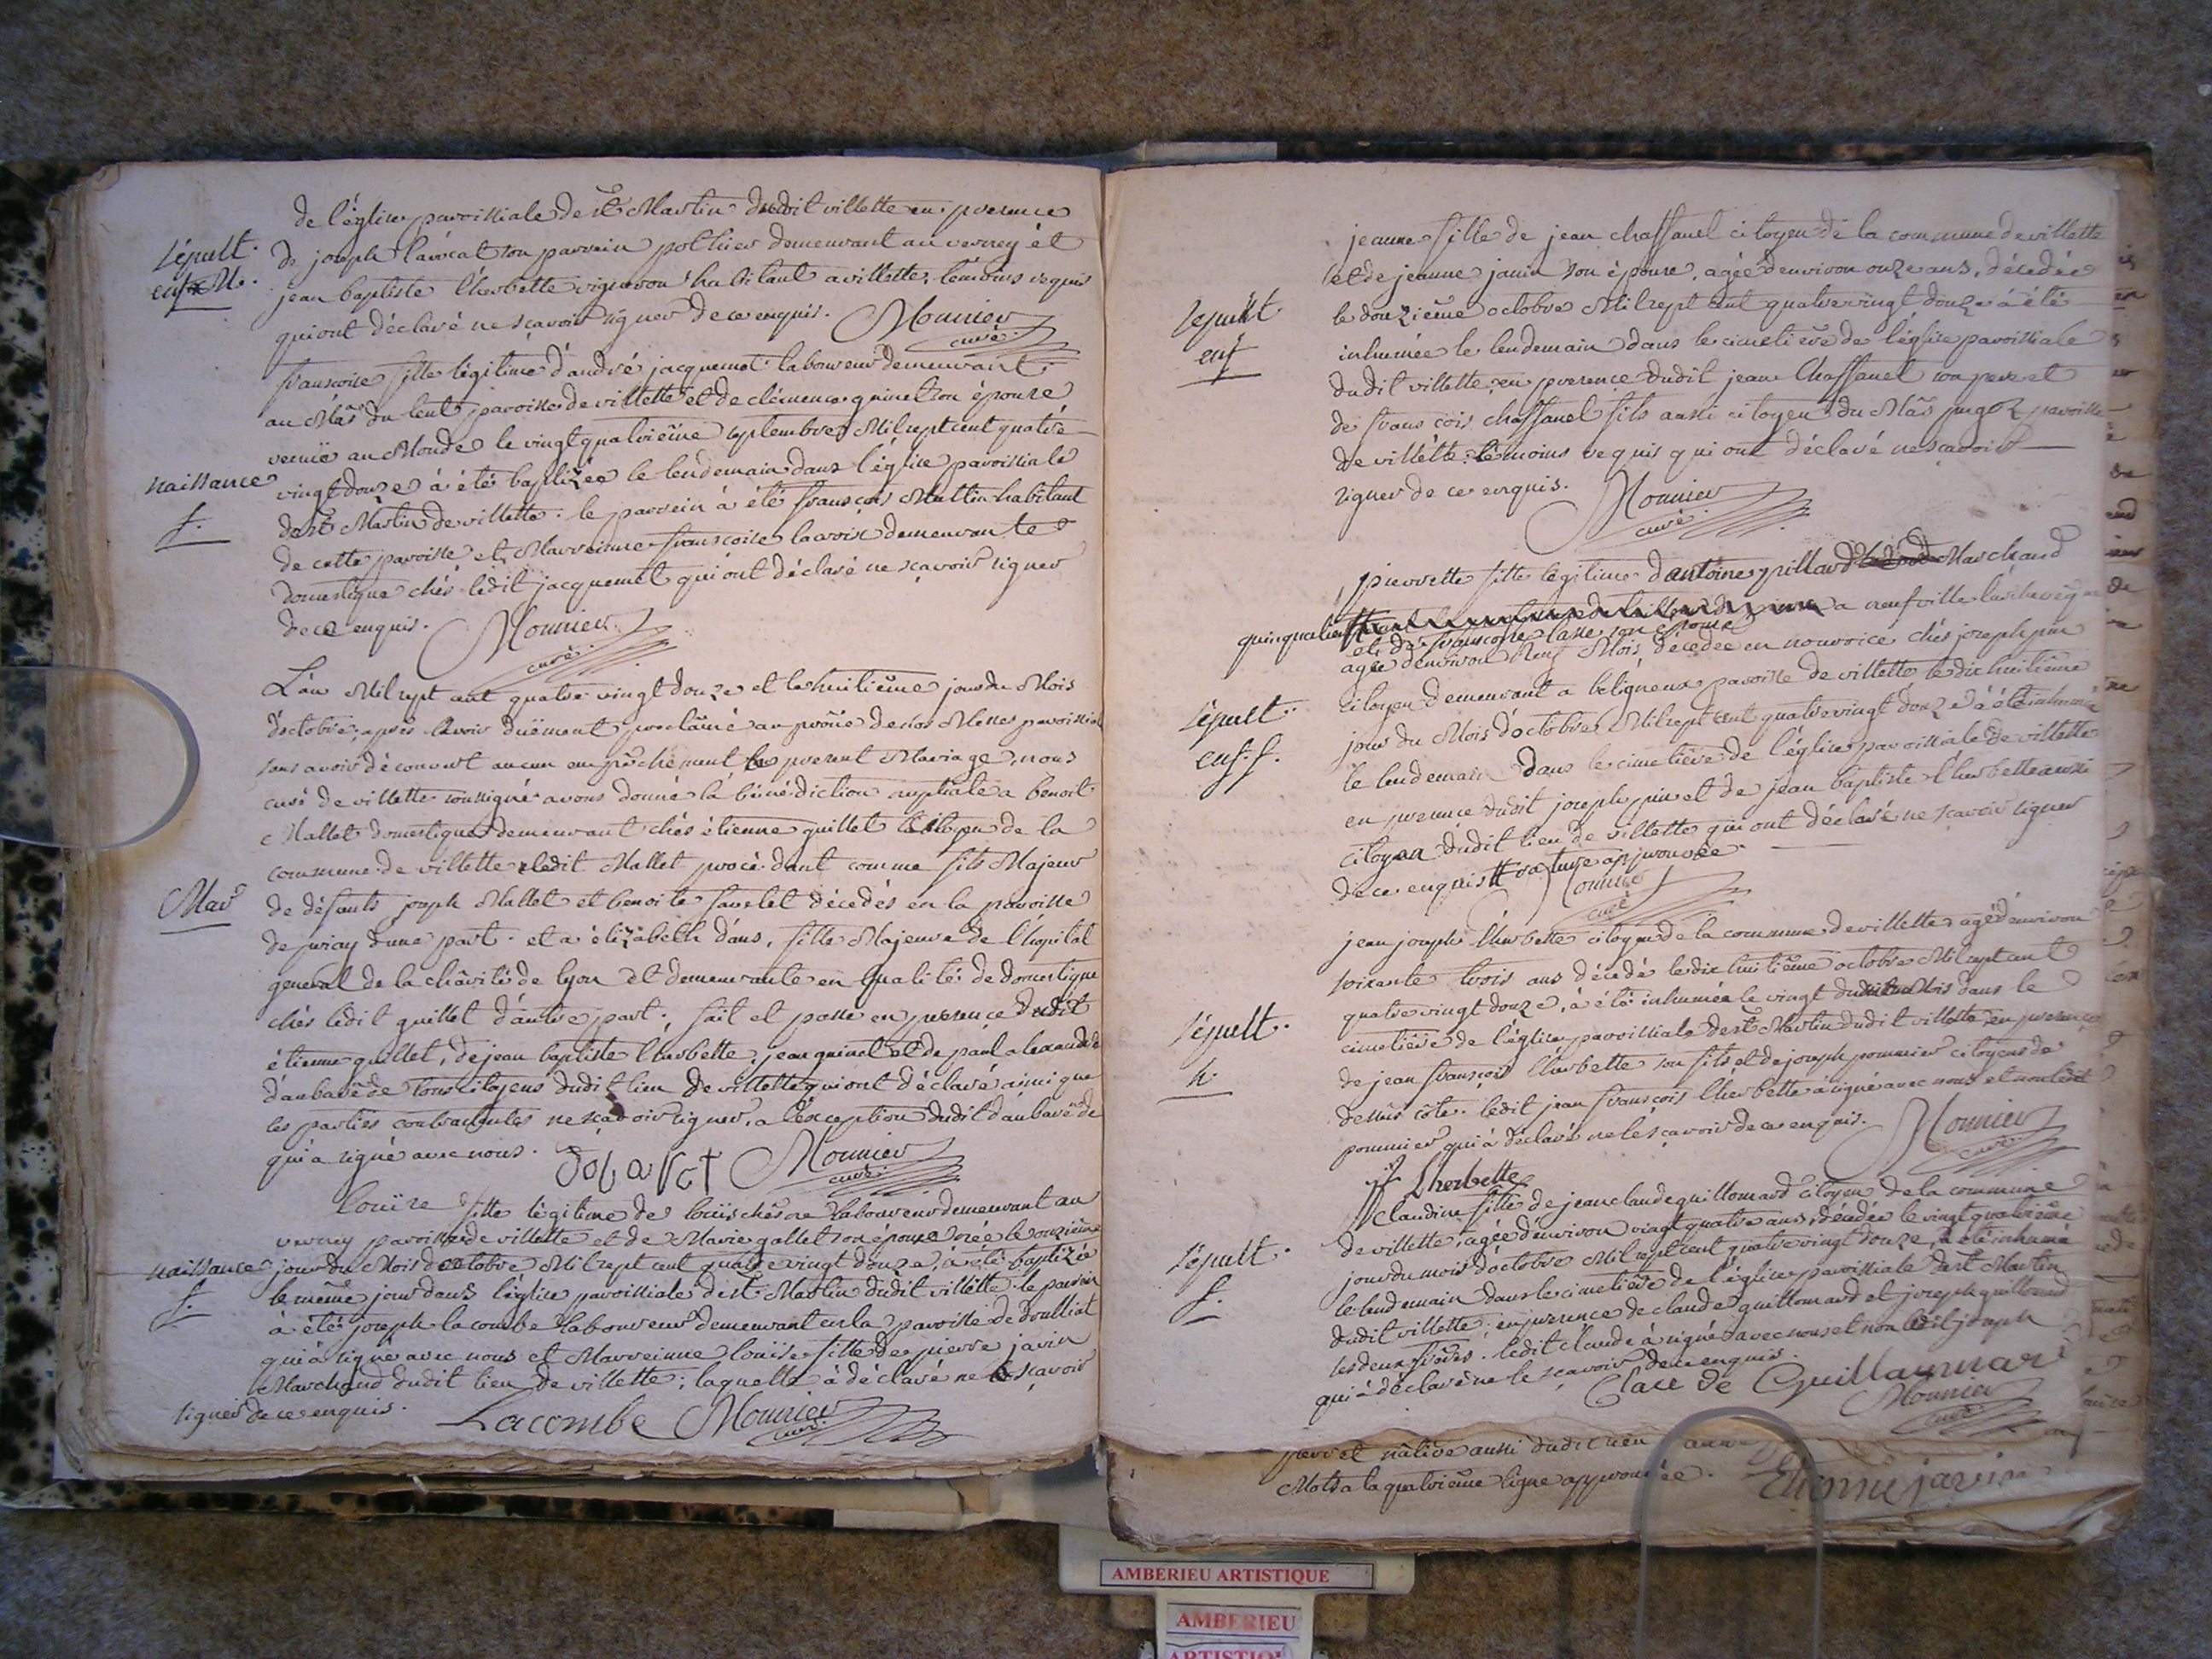 de l'église paroissiale de st Martin dudit villette en presence
sépult.
enf. M.
de joseph l'avocat son parrein pothier demeurant au verrey et
jean baptiste l'herbette vigneron habitant a villette, témoins requis
qui ont déclaré ne sçavoir signer de ce enquis. Mounier
curé
francoise fille légitime d'andré jacquemet laboureur demeurant
au Mâs du lent paroisse de villette et de clémence quinet son épouse
venüe au Monde le vingtquatrième septembre Mil sept cent quatre
naissance
f.
vingt douze à été baptizée le lendemain dans l'église paroissiale
de st Martin de villette. le parrein à été françois Mallin habitant
de cette paroisse et Marreinne françoise lacroix demeurante
domestique chés ledit jacquemet qui ont déclaré ne sçavoir signer
de ce enquis. Mounier
curé
L'an Mil sept cent quatre vingt douze et le huitième jour du Mois
d'octobre, après avoir düement proclâmé au prône de nos Messes paroissial
sans avoir découvert aucun empêchement le present Mariage, nous
curé de villette soussigné avons donné la bénédiction nuptiale a benoit
Mallet domestique demeurant chés étienne guillet citoyen de la
commune de villette ledit Mallet procédant comme fils Majeur
Mar
de défunts joseph Mallet et benoite décedés en la paroisse
de d'une part. et a élizabeth dans, fille Majeure de l'hopital
general de la chârité de lyon et demeurante en qualité de domestique
chés ledit guillet d'autre part. fait et passé en presence dudit
étienne guillet, de jean baptiste l'herbette, jean quinet et de paul alexandre
d'aubarede tous citoyens dudit lieu de villette qui ont déclaré ainsi que
les parties contractantes ne sçavoir signer, a l'exception dudit d'aubarede
qui a signé avec nous. Mounier
curé
Louise fille légitime de loüis chêne laboureur demeurant au
verrey paroisse de villette et de Marie gallet son épouse née le onzième
naissance
f.
jour du Mois d'octobre Mil sept cent quatre vingt douze, à été baptizée
le même jour dans l'église paroissiale de st Martin dudit villette. le parrein
à été joseph lacombe laboureur demeurant en la paroisse de
qui à signé avec nous et Marreinne loüise fille de pierre javin
Marchand dudit lieu de villette; laquelle à déclaré ne le sçavoir
signer de ce enquis. Lacombe Mounier
curé
jeanne fille de jean chaffanel citoyen de la commune de villette
et de jeanne janin son épouse, agée d'environ onze ans, décedée
sepult
enf
le douzième octobre Mil sept cent quatre vingt douze à été
inhumée le lendemain dans le cimetière de l'église paroissiale
dudit villette en presence dudit jean Chaffanel son pere et
de françois chaffanel fils aussi citoyen du Mâs paroisse
de villette témoins requis qui ont déclaré ne sçavoir
signer de ce enquis. Mounier
curé
pierrette fille légitime d'antoine pillard Marchand
quinqualier a neufville l'archevêque
et de françoise lasse son épouse
agée d'environ Mois, décedée en nourrice chés joseph pin
citoyen demeurant a beligneux paroisse de villette le dix huitième
sépult.
enf. f.
jour du Mois d'octobre Mil sept cent quatre vingt douze à été inhumée
le lendemain dans le cimetière de l'église paroissiale de villette
en presence dudit joseph pin et de jean baptiste l'herbette aussi
citoyen dudit lieu de villette qui ont déclaré ne sçavoir signer
de ce enquis # rature approuvée
Mounier
curé
jean joseph l'herbette citoyen de la commune de villette, agé d'environ
soixante trois ans décedé le dix huitième octobre Mil sept cent
quatre vingt douze, à été inhumée le vingt dudit Mois dans le
sépult.
h.
cimetière de l'église paroissiale de st Martin dudit villette, en presence
de jean françois l'herbette son fils et de joseph pommier citoyens de
dessus côte. ledit jean françois l'herbette à signé avec nous et non ledit
pommier qui à déclaré ne le sçavoir de ce enquis. Mounier
curé
jf Lherbette
Claudine fille de jean claude guillomard citoyen de la commune
de villette, agée d'environ vingt quatre ans, décedée le vingt quatrième
sépult.
f.
jour du mois d'octobre Mil sept cent quatre vingt douze, à été inhumé
le lendemain dans le cimetière de l'église paroissiale de st Martin
dudit villette; en presence de claude guillomard et joseph guillomard
les deux frères. ledit claude à signé avec nous et non ledit joseph
qui à déclaré ne le sçavoir de ce enquis.
Claude Guillaumar
Mounier
curé
pere et nâtive aussi dudit lieu
Mots a la quatrième ligne approuvée.
Etienne javin
AMBERIEU ARTISTIQUE
AMBERIEU
ARTISTIQUE